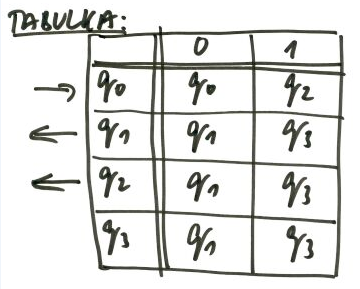 TABULKA:
0 1
→ q0 q0 q2
← q1 q1 q3
← q2 q1 q3
q3 q1 q3